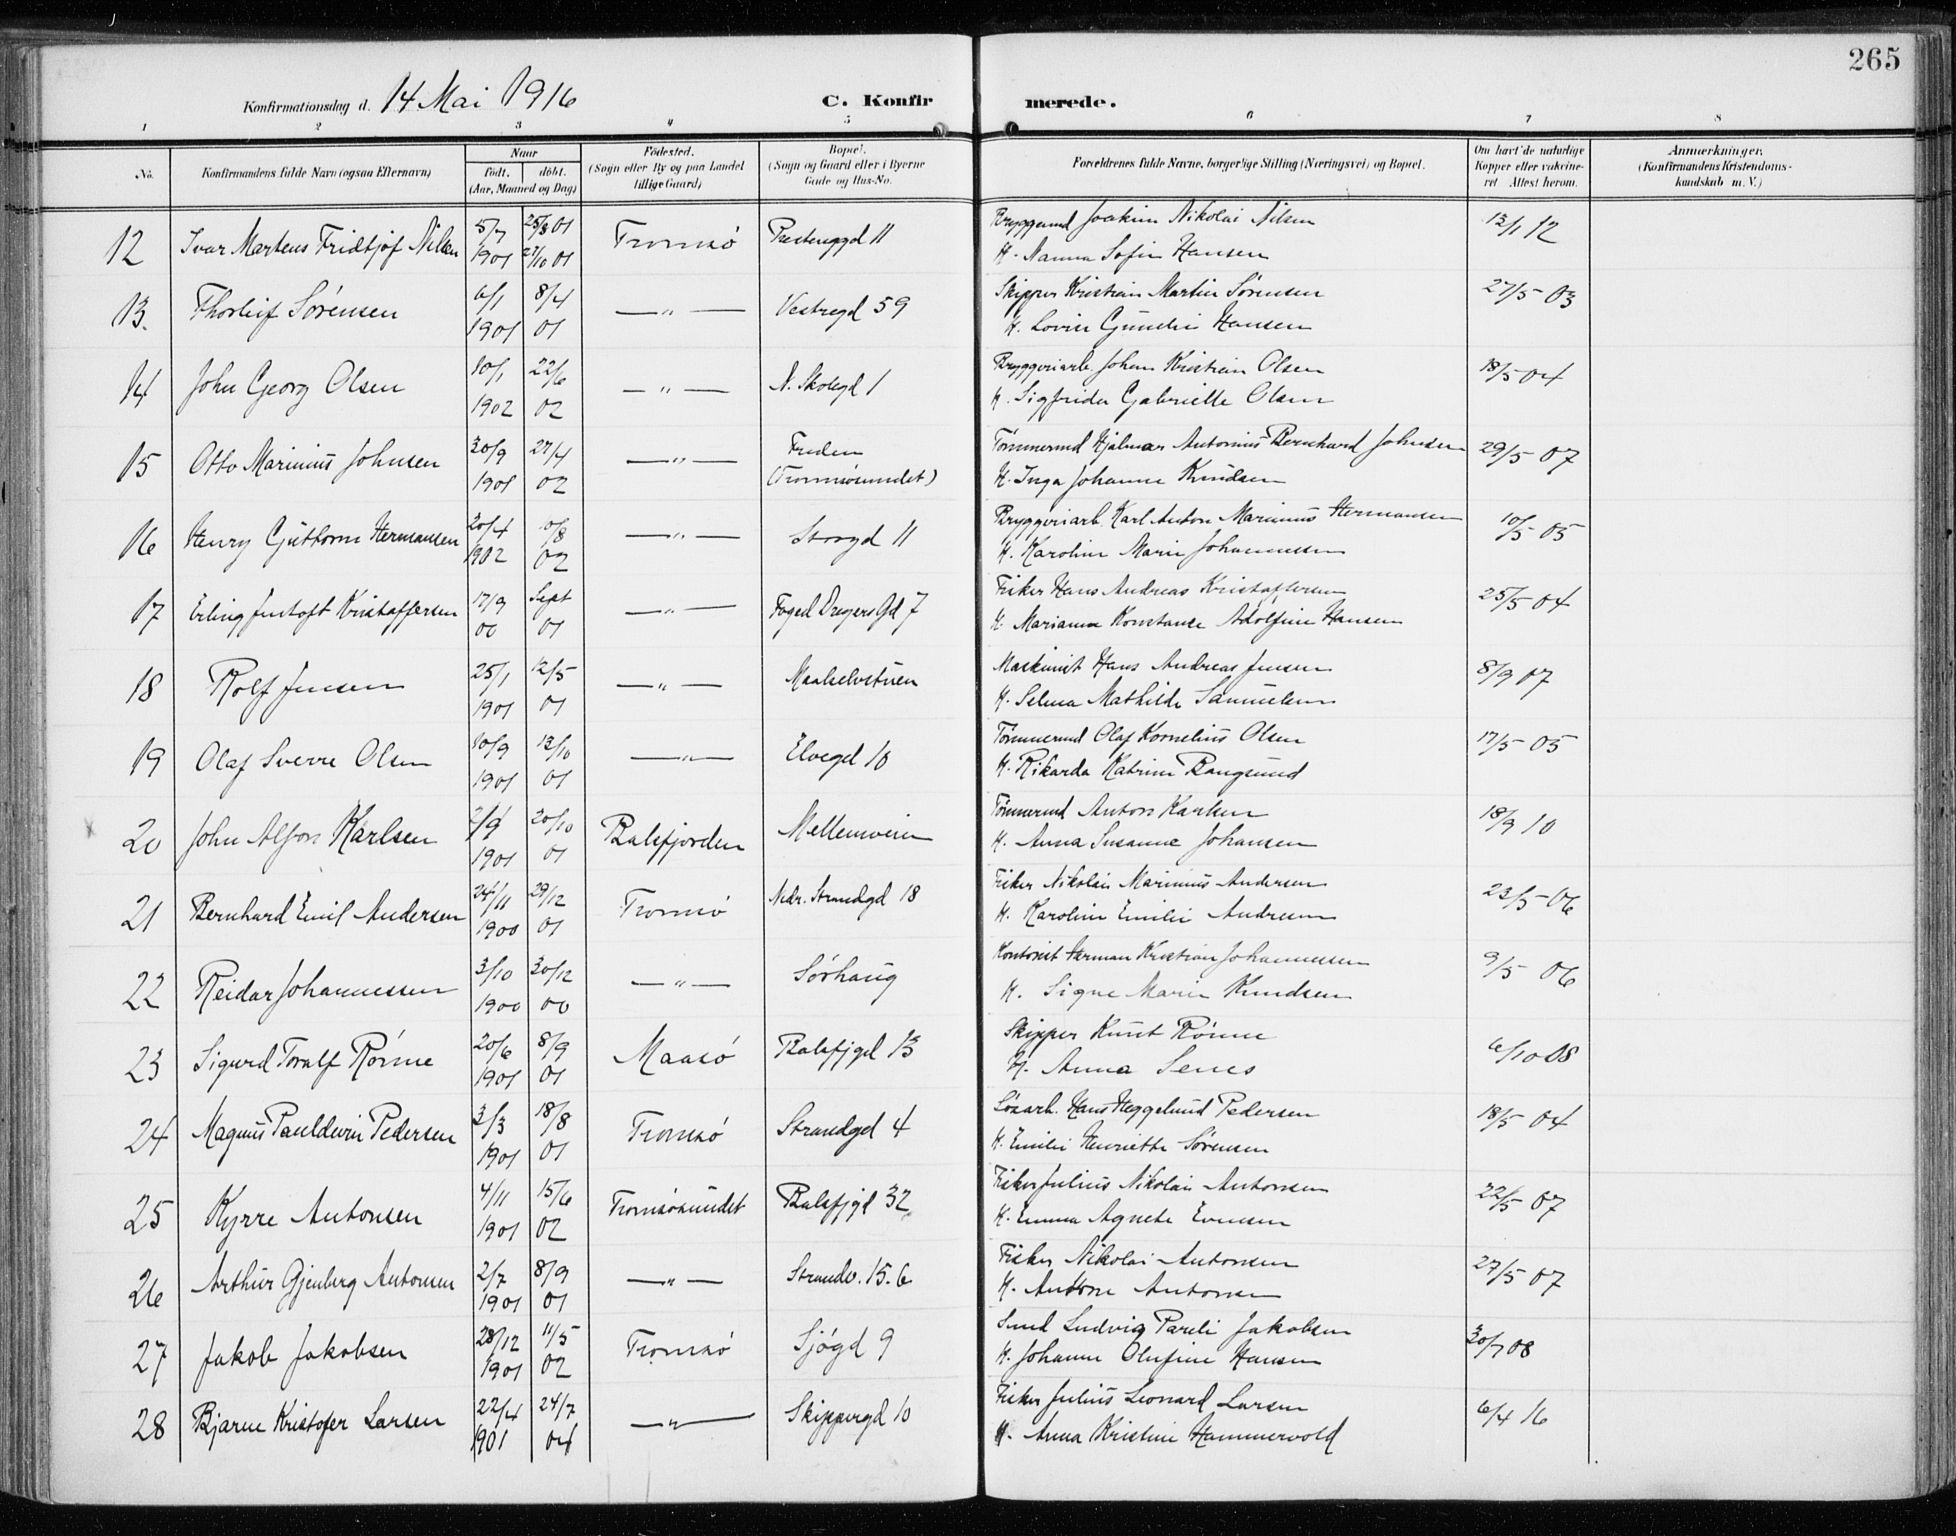 265
Konfirmationsdag d. 14 Mai 1916 C. Konfirmerede.
1 2 3 4 5 6 7 8
No. Konfirmandens fulde Navn (ogsaa Efternavn) Naar født. døbt. (Aar, Maaned og Dag) Fødested. (Sogn eller By og paa Landet tillige Gaard) Bopæl. (Sogn og Gaard eller i Byerne Gade og Hus-No. Forældrenes fulde Navne, borgerlige Stilling (Næringsvei) og Bopæl. Om havt de naturlige Kopper eller vakcineret Attest herom. Anmærkninger. (Konfirmandens Kristendomskundskab m. V.)
12 Ivar Martens Fridtjof Nilsen 5/7 1901 25/8 01 27/10 01 Tromsø 11 Joakim Nikolai Nilsen 13/1 12
H. Nanna Sofie Hansen
13. Thorleif Sørensen 6/1 1901 8/4 01 —"— Vestregd 59 Skipper Kristian Martin Sørensen 27/5 03
H. Lovise Gunelie Hansen
14 John Georg Olsen 10/1 1902 22/6 02 —"— N. Skolegd 1 Bryggeriarb. Johan Kristian Olsen 18/5 04
H. Sigfrida Gabrielle Olsen
15 Otto Marinius Johnsen 30/9 1901 27/4 02 —"— (Tromsøsundet) Tømmermd Hjalmar Antonius Bernhard Johnsen 29/5 07
H. Inga Johanne Knudsen
16 Henry Guttorm Hermansen 20/4 1902 10/8 02 —"— Storgd 11 Bryggeriarb. Karl Anton Marinius Hermansen 10/5 05
H. Karoline Marie Johannessen
17 Erling Jentoft Kristoffersen 17/9 00 Sept 01 —"— Foged Dreyers Gd 7 Fisker Hans Andreas Kristoffersen 25/5 04
H. Marianna Konstanse Adolfine Hansen
18 Rolf Jensen 25/1 1901 12/5 01 —"— Maalselvstuen Maskinist Hans Andreas Jensen 8/9 07
H. Selma Mathilde Samuelsen
19 Olaf Sverre Olsen 10/9 1901 13/10 01 —"— Elvegd 10 Tømmermd Olaf Kornelius Olsen 17/5 05
H. Rikarda Katrine Bangsund
20 John Alfon Karlsen 2/9 1901 20/10 01 Balsfjorden Mellemveien Tømmermd Anton Karlsen 18/9 10
H. Anna Susanne Johansen
21 Bernhard Emil Andersen 24/11 1900 29/12 01 Tromsø Nedr. Strandgd 18 Fisker Nikolai Marinius Andersen 23/5 06
H. Karoline Emilie Andersen
22 Reidar Johannessen 3/10 1900 30/12 00 —"— Sørhaug Kontorist Herman Kristian Johannessen 9/5 06
H. Signe Marie Knudsen
23 Sigurd Toralf Rønne 20/6 1901 8/9 01 Maasø Balsfjgd 13 Skipper Knut Rønne 6/10 08
H. Anna Senes
24 Magnus Pauldwin Pedersen 3/3 1901 18/8 01 Tromsø Strandgd 4 Løsarb. Hans Heggelund Pedersen 18/5 04
H. Emilie Henriette Sørensen
25 Kyrre Antonsen 4/11 1901 15/6 02 Tromsøsundet Balsfjgd 32 Fisker Julius Nikolai Antonsen 22/5 07
H. Emma Agnete Evensen
26 Arthur Gjenberg Antonsen 2/7 1901 8/9 01 —"— Strandv. 15.6 Fisker Nikolai Antonsen 27/5 07
H. Antone Antonsen
27 Jakob Jakobsen 28/12 1901 11/5 02 Tromsø Sjøgd 9 Smed Ludvig Pareli Jakobsen 30/7 08
H. Johanne Olufine Hansen
28 Bjarne Kristofer Larsen 22/4 1901 24/7 04 —"— Skippergd 10 Fisker Julius Leonard Larsen 6/4 16
H. Anna Kristine Hammervold